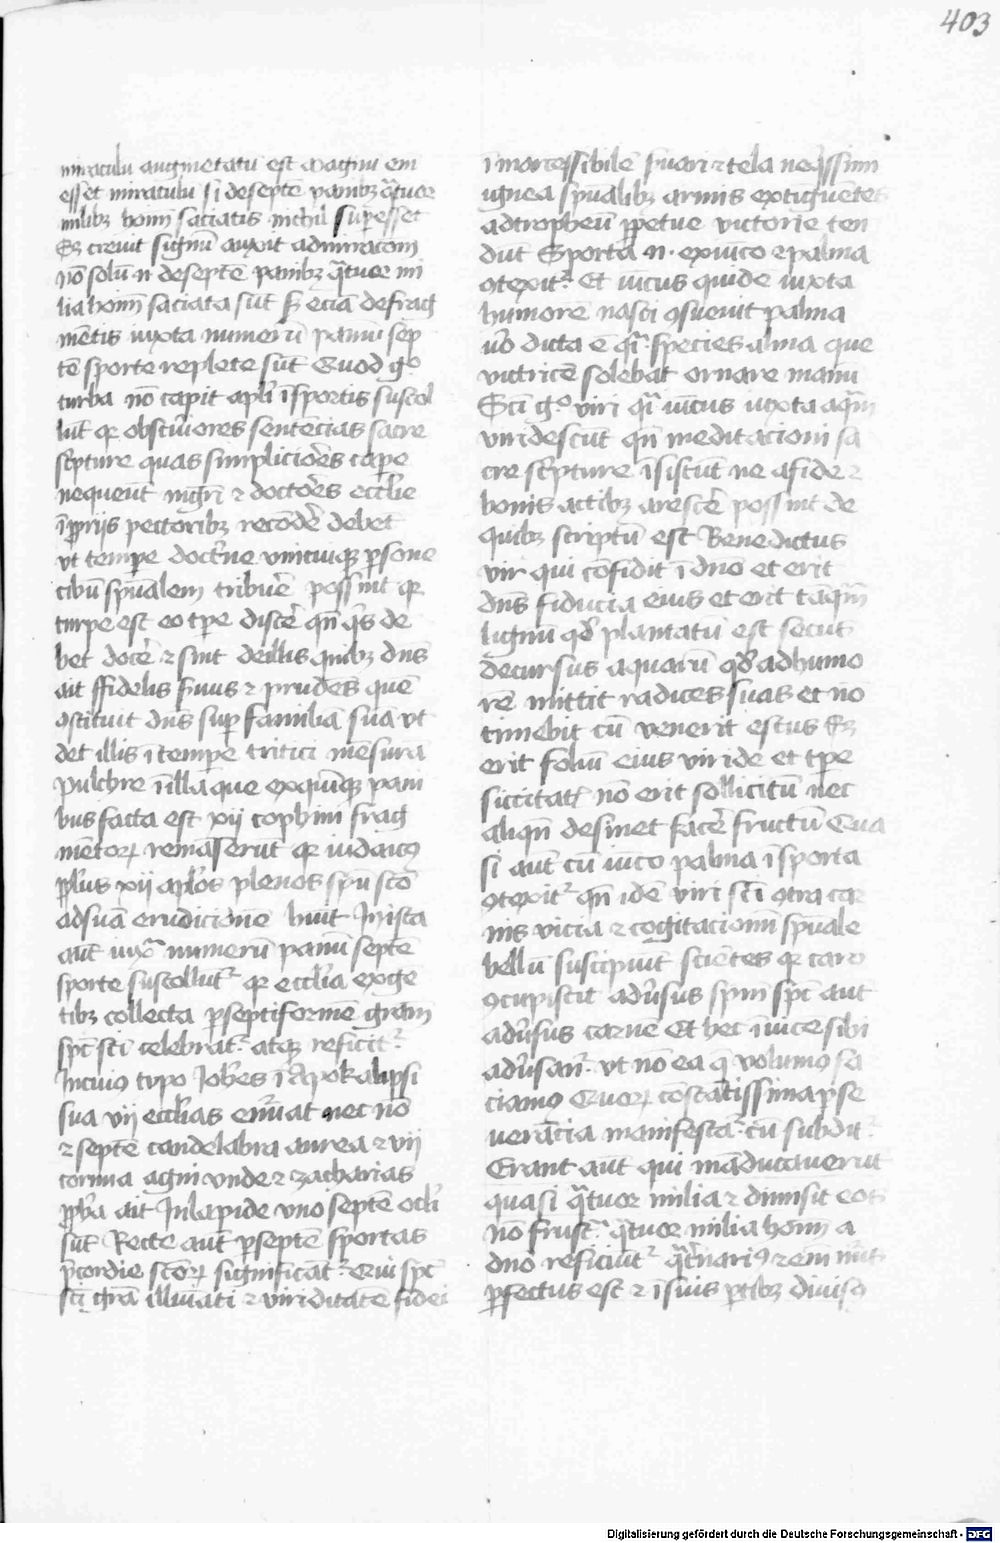 403
miraculu augmetatu est Magnu em
esset miraculu si de septē panibꝫ qͣtuor
milibꝫ homī saciatis nichil sup̱esset
Sꝫ creuit signū auxit admiracōm
nō solū n̄ de septē panibꝫ qͣtuor mi
lia homī saciata sūt sꝫ eciā de frag
mētis iuxta numerū panū sep
tē sporte replete sūt Quod gͦ
turba nō capit apl̄i ī sportis sustol
lūt qꝛ obscuriores sentencias sacre
sc̄pture quas simpliciōes cape
nequeūt mgr̄i ⁊ doctōes eccl̄ie
ī ꝓprijs pectoribꝫ recōdē debēt
vt tempe doct̓ne vnicuiqꝫ ꝑsone
cibū spūalem tribuē possint qꝛ
turpe est eo tp̄e discē qn̄ qͥs de
bet docē ⁊ sint de illis quibꝫ dn̄s
ait ffidelis suus ⁊ prudēs quē
ꝯstituit dn̄s sup familiā suā vt
det illis ī tempe tritici mēsurā
Pulchre ī illa que ex quīqꝫ pani
bus facta est xij cophini frag
mētoꝝ remāserūt qꝛ iudaicꝰ
ppl̄us xij apl̄os plenos spū scō
ad suā erudicionē huit In ista
aūt iuxͣ numerū panū septē
sporte sustollūtʳ qꝛ eccl̄ia ex gē
tibꝫ collecta ꝑ septiformē grām
spc̄ scī celebratʳ atqꝫ reficitʳ
In cuiꝰ typo Joh̄es ī Apokalipsi
sua vij eccl̄ias enūat nec nō
⁊ septē candelabra aurea ⁊ vij
cornua agni vnde ⁊ zacharias
ꝓph̄a ait In lapide vno septē ocl̄i
sūt Recte aūt ꝑ septē sportas
p̄cordie scōꝝ significātʳ Qui spc̄
scī grā illūati ⁊ viriditate fidei
īmarcessibilē suari ⁊ tela neqͥssimi
ignea spūalibꝫ armis extīguētes
ad tropheū ꝑpetue victorie ten
dūt Sporta n̄ ex iūco ⁊ palma
ꝯtexitʳ Et iūcus quidē iuxta
humorē nasci ꝯsueuit palma
ūo dicta ē qꝛ species alma que
victricē solebat ornare manū
Sc̄i gͦ viri qͣi iūcus iuxta aqͣm
viridescūt qn̄ meditacioni sa
cre sc̄pture īsistūt ne a fide ⁊
bonis actibꝫ arescē possint de
quibꝫ scriptū est Benedictus
vir qui cōfidit ī dn̄o et erit
dn̄s fiducia eius et erit tāqͣm
lignū qd̄ plantatū est secus
decursus aquarū qd̄ ad humo
rē mittit radices suas et nō
timebit cū venerit estus Sꝫ
erit foliū eius viride et tp̄e
siccitatꝭ nō erit sollicitū nec
aliqn̄ desinet facē fructū Qua
si aūt cū iūco palma ī sporta
ꝯtexitʳ qn̄ idē viri sc̄i ꝯtra car
nis vicia ⁊ cogitacionū spūale
bellū suscipiūt scietes qꝛ caro
ꝯcupiscit aduſus spm̄ spc̄ aūt
aduſus carnē Et hec īuicē sibi
aduſanʳ vt nō ea q̄ volumꝰ fa
ciamꝰ Quoꝝ cōstātissima ꝑse
uerācia manifestaʳ cū subditʳ
Erant aūt qui māducauerūt
quasi qͣtuor milia ⁊ dimisit eos
nō frustͣ qͣtuor milia homī a
dn̄o reficiūtʳ qͣt̓nariꝰ ⁊em nūs
ꝑfectus est ⁊ ī suis ꝑtibꝫ diuisꝰ
Digitalisierung gefördert durch die Deutsche Forschungsgemeinschaft - DFG